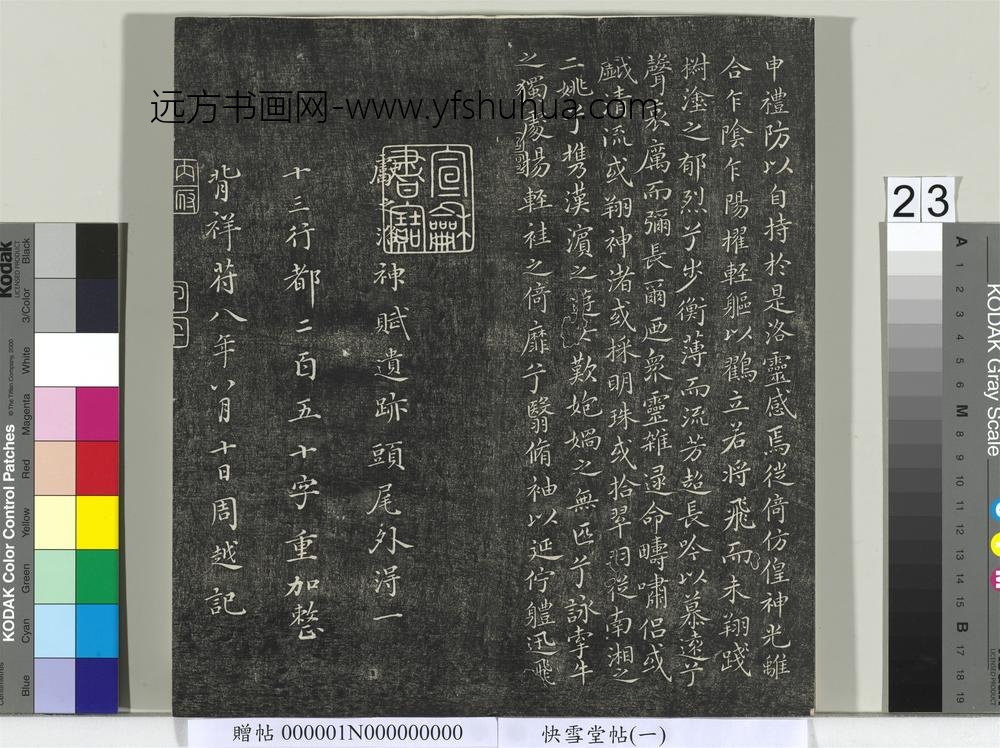 申禮防以自持於是洛靈感焉徙倚仿偟神光離
合乍陰乍陽擢輕軀以鶴立若將飛而未翔踐
椒塗之郁烈兮步衡薄而流芳超長吟以慕遠兮
聲哀厲而彌長爾乃眾靈雜遝命疇嘯侶或
戲清流或翔神渚或採明珠或拾翠羽從南湘之
二姚兮攜漢濱之遊女歎匏媧之無匹兮詠牽牛
之獨處揚輕袿之倚靡兮翳脩袖以延佇軆迅飛
宣龢書寶
神賦遺跡頭尾外得一
十三行都二百五十字重加整
背祥符八年八月十日周越記
远方书画网-www.yfshuhua.com
23
贈帖 000001N000000000
快雪堂帖(一)
Kodak
LICENSED PRODUCT
KODAK Color Control Patches
© The Tiffen Company, 2000
Blue
Cyan
Green
Yellow
Red
Magenta
White
3/Color
Black
KODAK Gray Scale
A 1 2 3 4 5 6 M 8 9 10 11 12 13 14 15 B 17 18 19